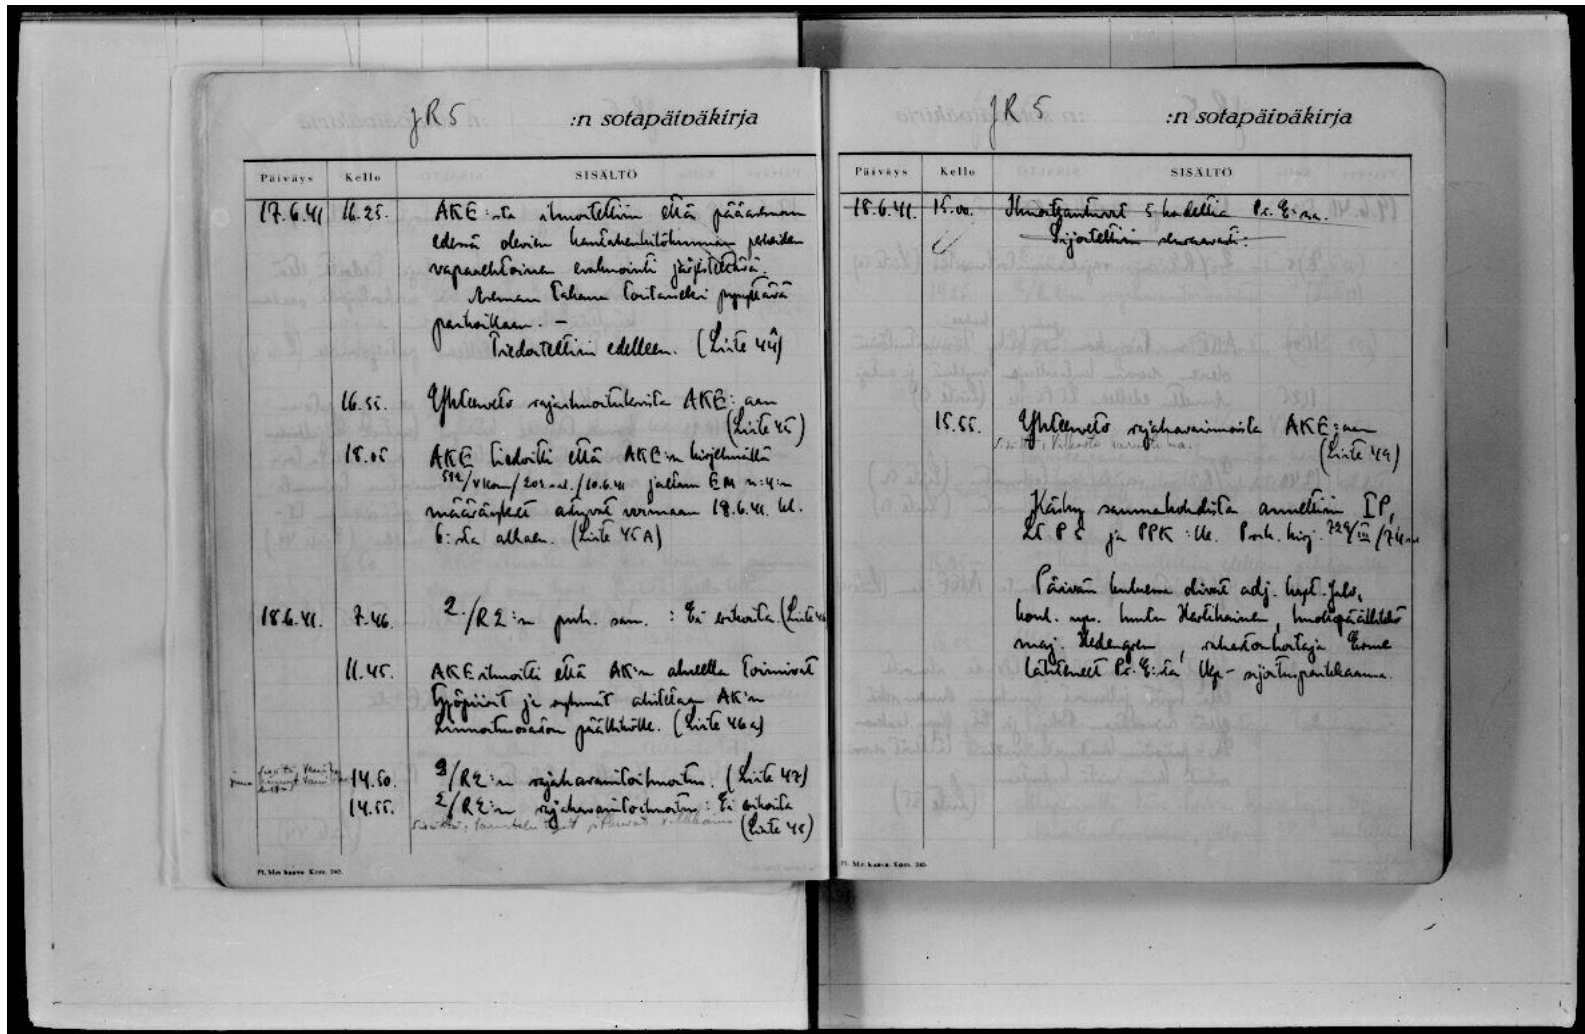 JR 5 :n sotapäiväkirja
Päiväys Kello SISÄLTÖ
17.6.41 16.25. AKE:sta ilmoitettiin että pääaseman
edessä olevien kantahenkilökunnan perheiden
vapaaehtoinen evakuointi järjestettävä.
Aseman takana toistaiseksi pysyttävä
paikoillaan. —
Tiedoitettiin edelleen. (Liite 44)
16.55. Yhteenveto rajailmoituksista AKE:aan
(Liite 45)
18.05 AKE tiedoitti että AKE:n kirjelmällä
/10.6.41 EM n:4:n
määräykset astuvat voimaan 18.6.41. kl.
6:sta alkaen. (Liite 45A)
18.6.41. 7.46. 2./RE:n puh. san. : Ei erikoista. (Liite 46
11.45. AKE ilmoitti että AK:n alueella toimivat
työpiirit ja ryhmät alistetaan AK:n
Linnoitusosaston päällikölle. (Liite 46a)
14.50. 3/RE:n rajahavaintoilmoitus. (Liite 47)
14.55. 2/RE:n rajahavaintoilmoitus: Ei erikoista
(Liite 48)
Pt. Mer kaava Kom. 240.
JR 5 :n sotapäiväkirja
Päiväys Kello SISÄLTÖ
18.6.41. 15.00. Ilmoittautuivat 5 kadettia Pr. E:ssa.
Sijoitettiin seuraavasti:
15.55. Yhteenveto rajahavainnoista AKE:aan
(Liite 49)
Käsky saumakohdista annettiin I P,
Lt P 5 ja PPK:lle. Prik. kirj. 729/III/
Päivän kuluessa olivat adj. kapt. Jalo,
koul. ups. luutn. Hartikainen, huoltopäällikkö
maj. Hedengren, rahastonhoitaja
lähteneet Pr. E:sta sijoituspaikkaansa.
Pt. Mer kaava Kom. 240.